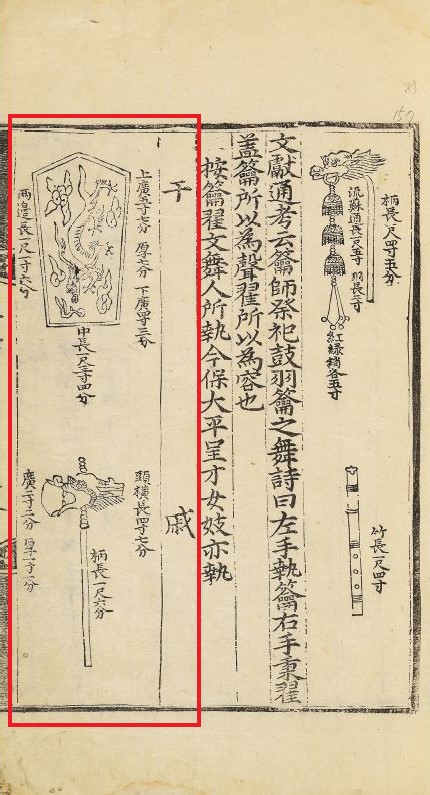 柄長一尺四寸五分
流蘇通長一尺五寸
羽長三寸
紅綠綃各五寸
竹長一尺四寸
文獻通考云籥師祭祀鼓羽籥之舞詩曰左手執籥右手秉翟
盖籥所以為聲翟所以為容也
按籥翟文舞人所執今保大平呈才女妓亦執
干
上廣五寸七分 厚六分 下廣四寸三分
中長一尺三寸四分
兩邊長一尺一寸六分
戚
頭橫長四寸七分
柄長一尺六分